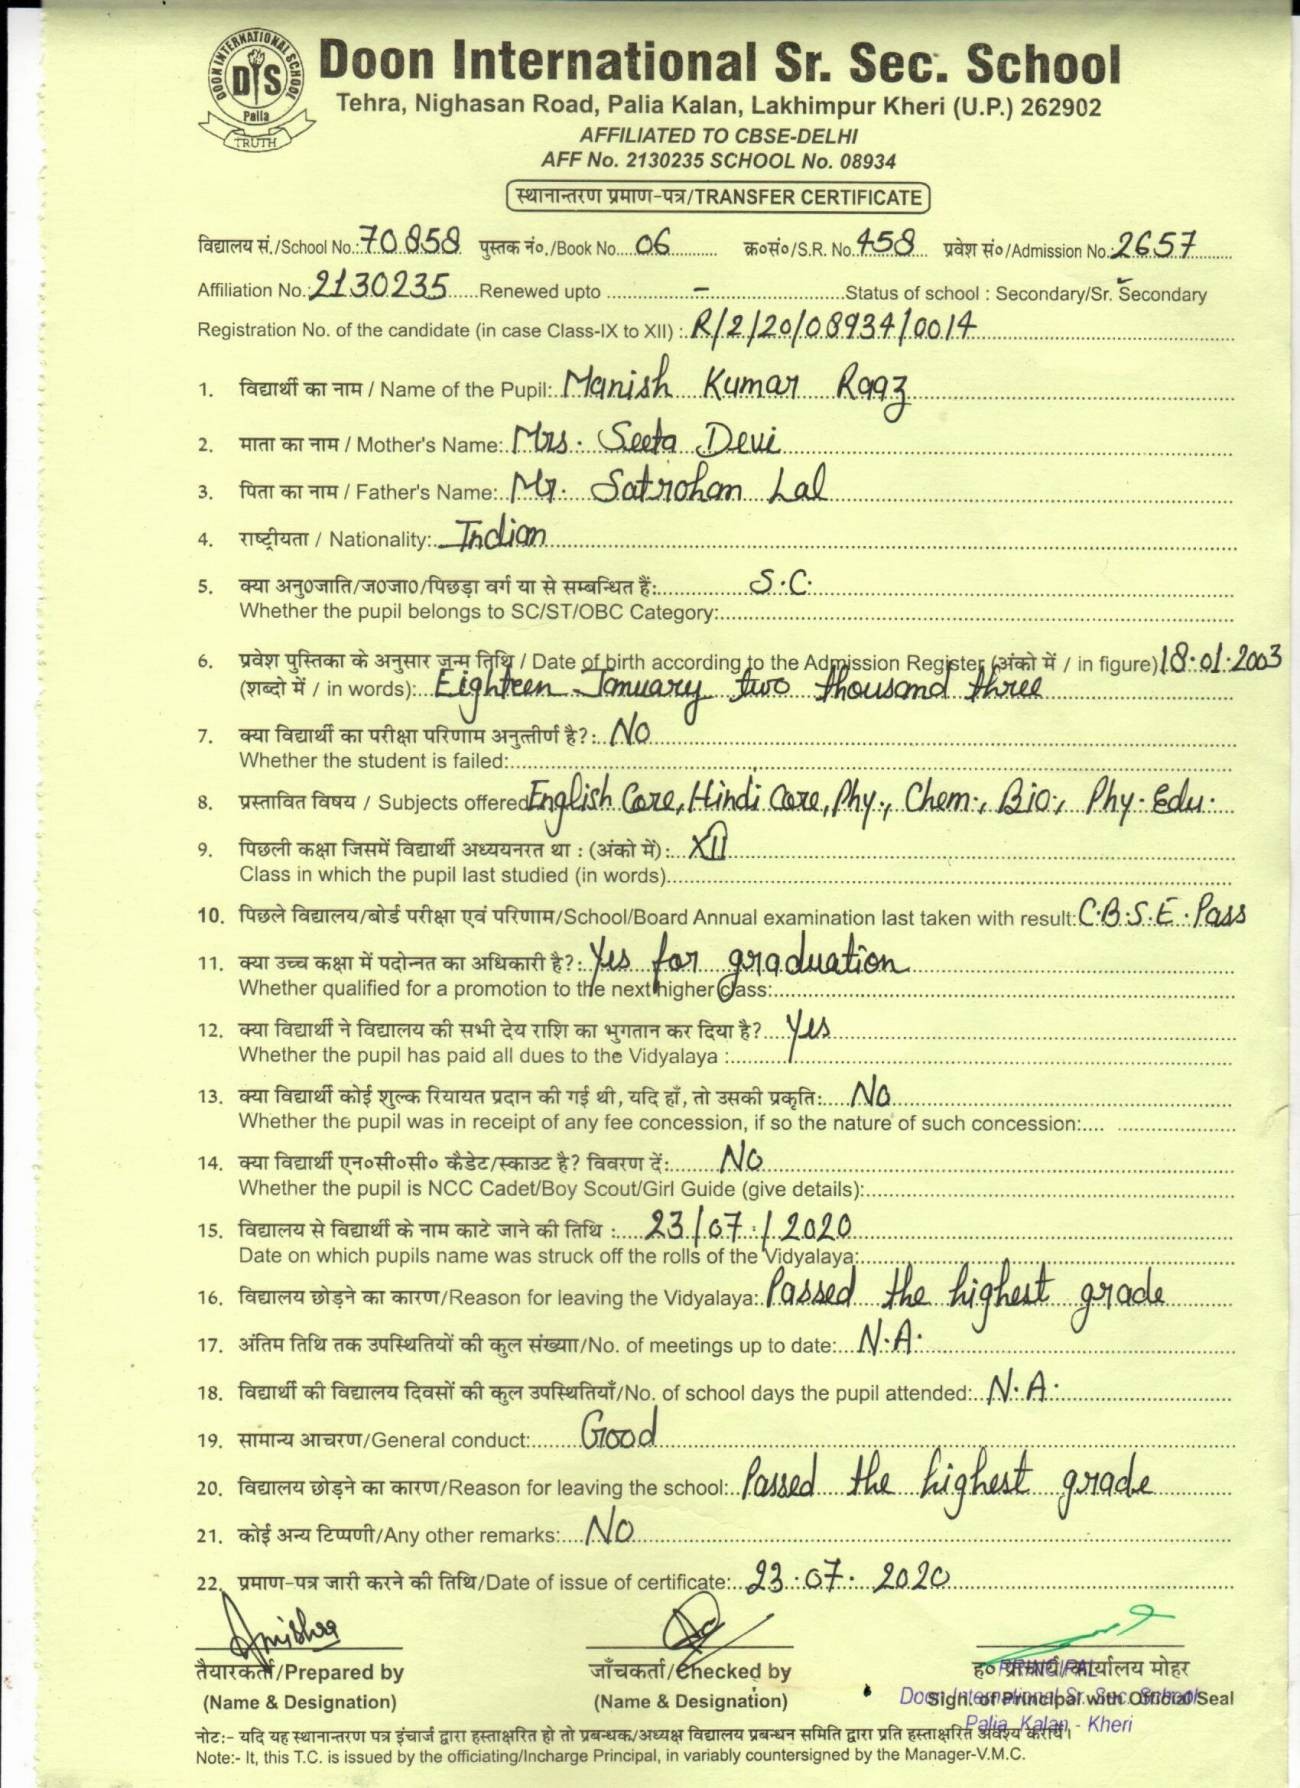 DOON INTERNATIONAL SCHOOL
DIS
Palia
TRUTH
Doon International Sr. Sec. School
Tehra, Nighasan Road, Palia Kalan, Lakhimpur Kheri (U.P.) 262902
AFFILIATED TO CBSE-DELHI
AFF No. 2130235 SCHOOL No. 08934
स्थानान्तरण प्रमाण-पत्र/TRANSFER CERTIFICATE
विद्यालय सं./School No.: 70858 पुस्तक नं०./Book No. 06 क्र०सं०/S.R. No. 458 प्रवेश सं०/Admission No.: 2657
Affiliation No. 2130235 Renewed upto - Status of school : Secondary/Sr. Secondary
Registration No. of the candidate (in case Class-IX to XII) : R/2/20/08934/0014
1. विद्यार्थी का नाम / Name of the Pupil: Manish Kumar Raaz
2. माता का नाम / Mother's Name: Mrs. Seeta Devi
3. पिता का नाम / Father's Name: Mr. Satrohan Lal
4. राष्ट्रीयता / Nationality: Indian
5. क्या अनु0जाति/ज0जा0/पिछड़ा वर्ग या से सम्बन्धित हैं: S.C.
Whether the pupil belongs to SC/ST/OBC Category:
6. प्रवेश पुस्तिका के अनुसार जन्म तिथि / Date of birth according to the Admission Register (अंको में / in figure) 18.01.2003
(शब्दो में / in words): Eighteen January two thousand three
7. क्या विद्यार्थी का परीक्षा परिणाम अनुत्तीर्ण है?: NO
Whether the student is failed:
8. प्रस्तावित विषय / Subjects offered English Core, Hindi Core, Phy., Chem., Bio., Phy. Edu.
9. पिछली कक्षा जिसमें विद्यार्थी अध्ययनरत था : (अंको में): XII
Class in which the pupil last studied (in words)
10. पिछले विद्यालय/बोर्ड परीक्षा एवं परिणाम/School/Board Annual examination last taken with result: C.B.S.E. Pass
11. क्या उच्च कक्षा में पदोन्नत का अधिकारी है?: Yes for graduation
Whether qualified for a promotion to the next higher class:
12. क्या विद्यार्थी ने विद्यालय की सभी देय राशि का भुगतान कर दिया है? Yes
Whether the pupil has paid all dues to the Vidyalaya :
13. क्या विद्यार्थी कोई शुल्क रियायत प्रदान की गई थी, यदि हाँ, तो उसकी प्रकृति: NO
Whether the pupil was in receipt of any fee concession, if so the nature of such concession:
14. क्या विद्यार्थी एन०सी०सी० कैडेट/स्काउट है? विवरण दें: NO
Whether the pupil is NCC Cadet/Boy Scout/Girl Guide (give details):
15. विद्यालय से विद्यार्थी के नाम काटे जाने की तिथि : 23/07/2020
Date on which pupils name was struck off the rolls of the Vidyalaya:
16. विद्यालय छोड़ने का कारण/Reason for leaving the Vidyalaya: Passed the highest grade
17. अंतिम तिथि तक उपस्थितियों की कुल संख्या/No. of meetings up to date: N.A.
18. विद्यार्थी की विद्यालय दिवसों की कुल उपस्थितियाँ/No. of school days the pupil attended: N.A.
19. सामान्य आचरण/General conduct: Good
20. विद्यालय छोड़ने का कारण/Reason for leaving the school: Passed the highest grade
21. कोई अन्य टिप्पणी/Any other remarks: NO
22. प्रमाण-पत्र जारी करने की तिथि/Date of issue of certificate: 23.07.2020
तैयारकर्ता/Prepared by जाँचकर्ता/Checked by ह० प्राचार्य/कार्यालय मोहर
PRINCIPAL
(Name & Designation) (Name & Designation) Sign. of Principal with Official Seal
Doon International Sr. Sec. School
Palia Kalan - Kheri
नोट:- यदि यह स्थानान्तरण पत्र इंचार्ज द्वारा हस्ताक्षरित हो तो प्रबन्धक/अध्यक्ष विद्यालय प्रबन्धन समिति द्वारा प्रति हस्ताक्षरित अवश्य करायें।
Note:- It, this T.C. is issued by the officiating/Incharge Principal, in variably countersigned by the Manager-V.M.C.